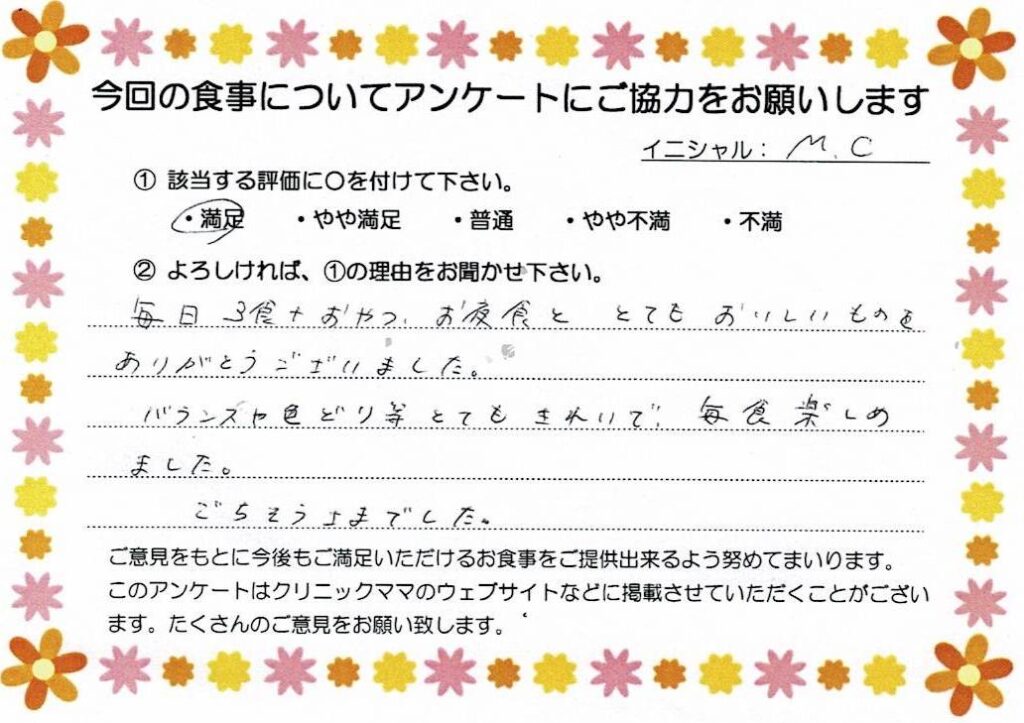 今回の食事についてアンケートにご協力をお願いします
イニシャル： M. C
① 該当する評価に〇を付けて下さい。
・満足 ・やや満足 ・普通 ・やや不満 ・不満
② よろしければ、①の理由をお聞かせ下さい。
毎日 3食+おやつ、お夜食と とても おいしいものを
ありがとうございました。
バランスや色どり等とてもきれいで、毎食楽しめ
ました。
ごちそうさまでした。
ご意見をもとに今後もご満足いただけるお食事をご提供出来るよう努めてまいります。
このアンケートはクリニックママのウェブサイトなどに掲載させていただくことがござい
ます。たくさんのご意見をお願い致します。